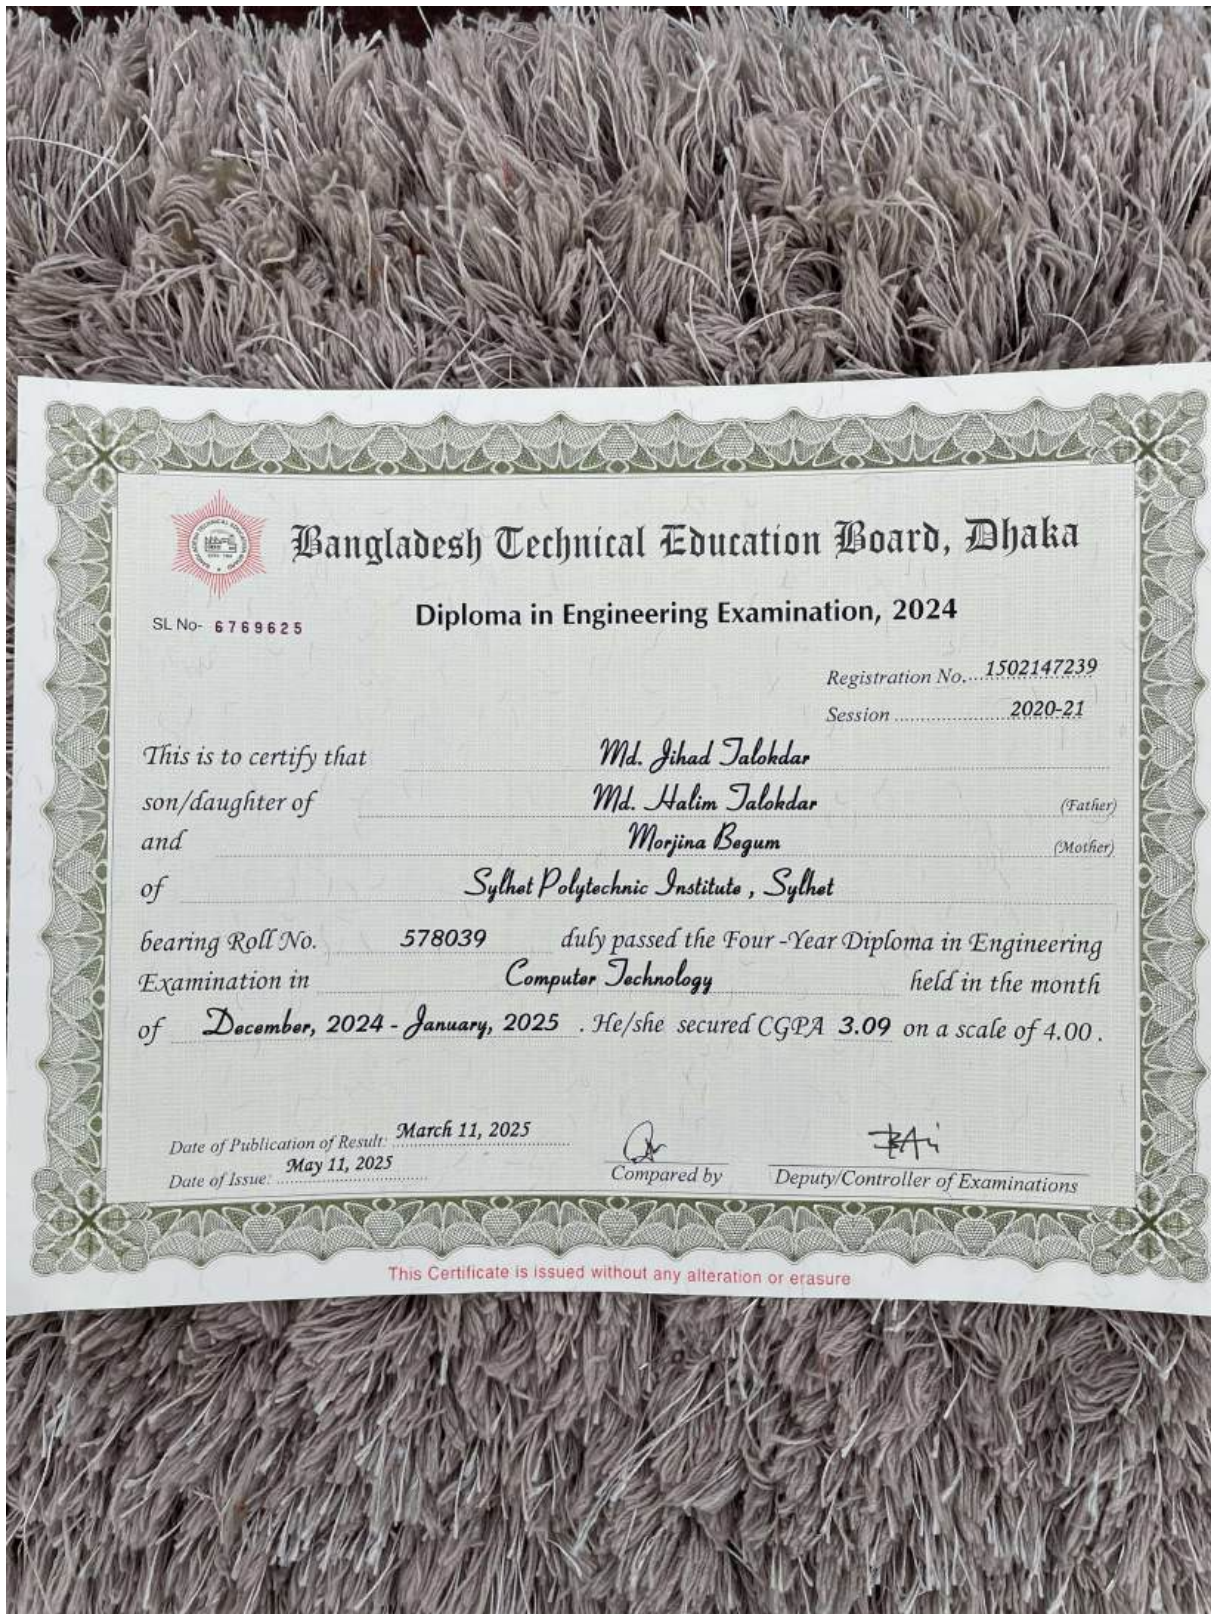 Bangladesh Technical Education Board, Dhaka
Diploma in Engineering Examination, 2024
SL No- 6769625
Registration No. 1502147239
Session 2020-21
This is to certify that Md. Jihad Talokdar
son/daughter of Md. Halim Talokdar (Father)
and Morjina Begum (Mother)
of Sylhet Polytechnic Institute , Sylhet
bearing Roll No. 578039 duly passed the Four -Year Diploma in Engineering
Examination in Computer Technology held in the month
of December, 2024 - January, 2025 . He/she secured CGPA 3.09 on a scale of 4.00 .
Date of Publication of Result: March 11, 2025
Date of Issue: May 11, 2025
Compared by
Deputy/Controller of Examinations
This Certificate is issued without any alteration or erasure